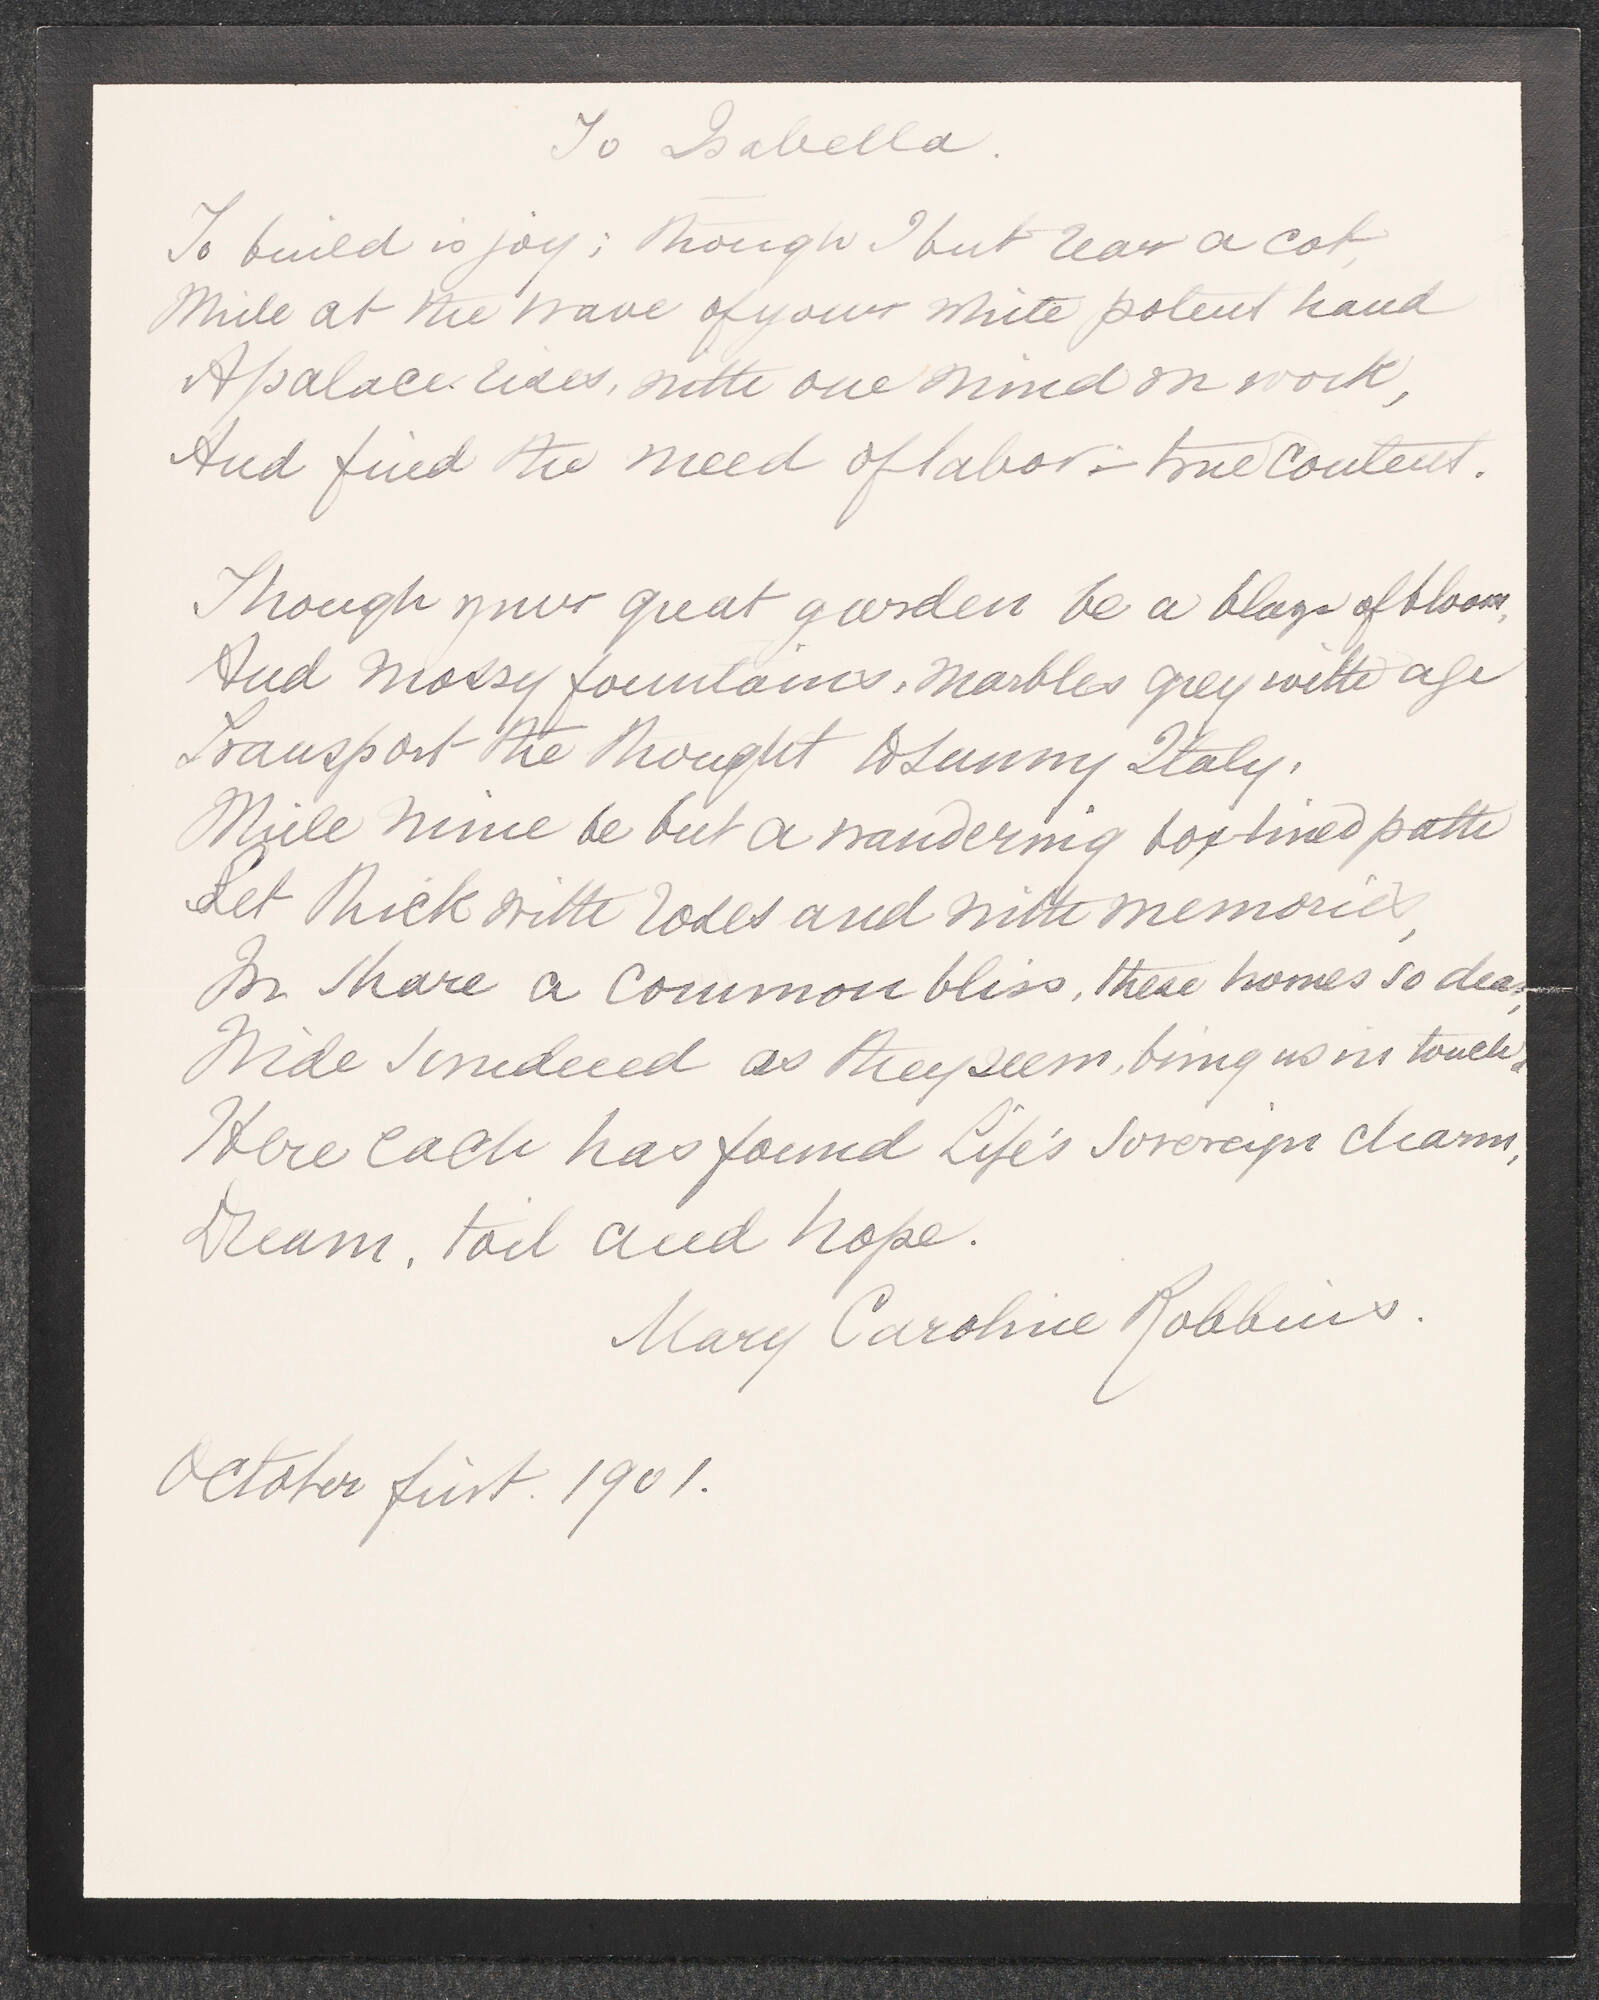 To Isabella.
To build is joy; though I but rear a cot,
While at the wave of your white potent hand
A palace rises, with one mind we work,
And find the meed of labor:- true content.
Though your great garden be a blaze of bloom,
And mossy fountains, marbles grey with age
Transport the thought to sunny Italy,
While mine be but a wandering box-lined path
Set thick with roses and with memories,
We share a common bliss, these homes so dear,
Wide sundered as they seem, bring us in touch;
Here each has found Life's sovereign charm,
Dream, toil and hope.
Mary Caroline Robbins.
October first. 1901.